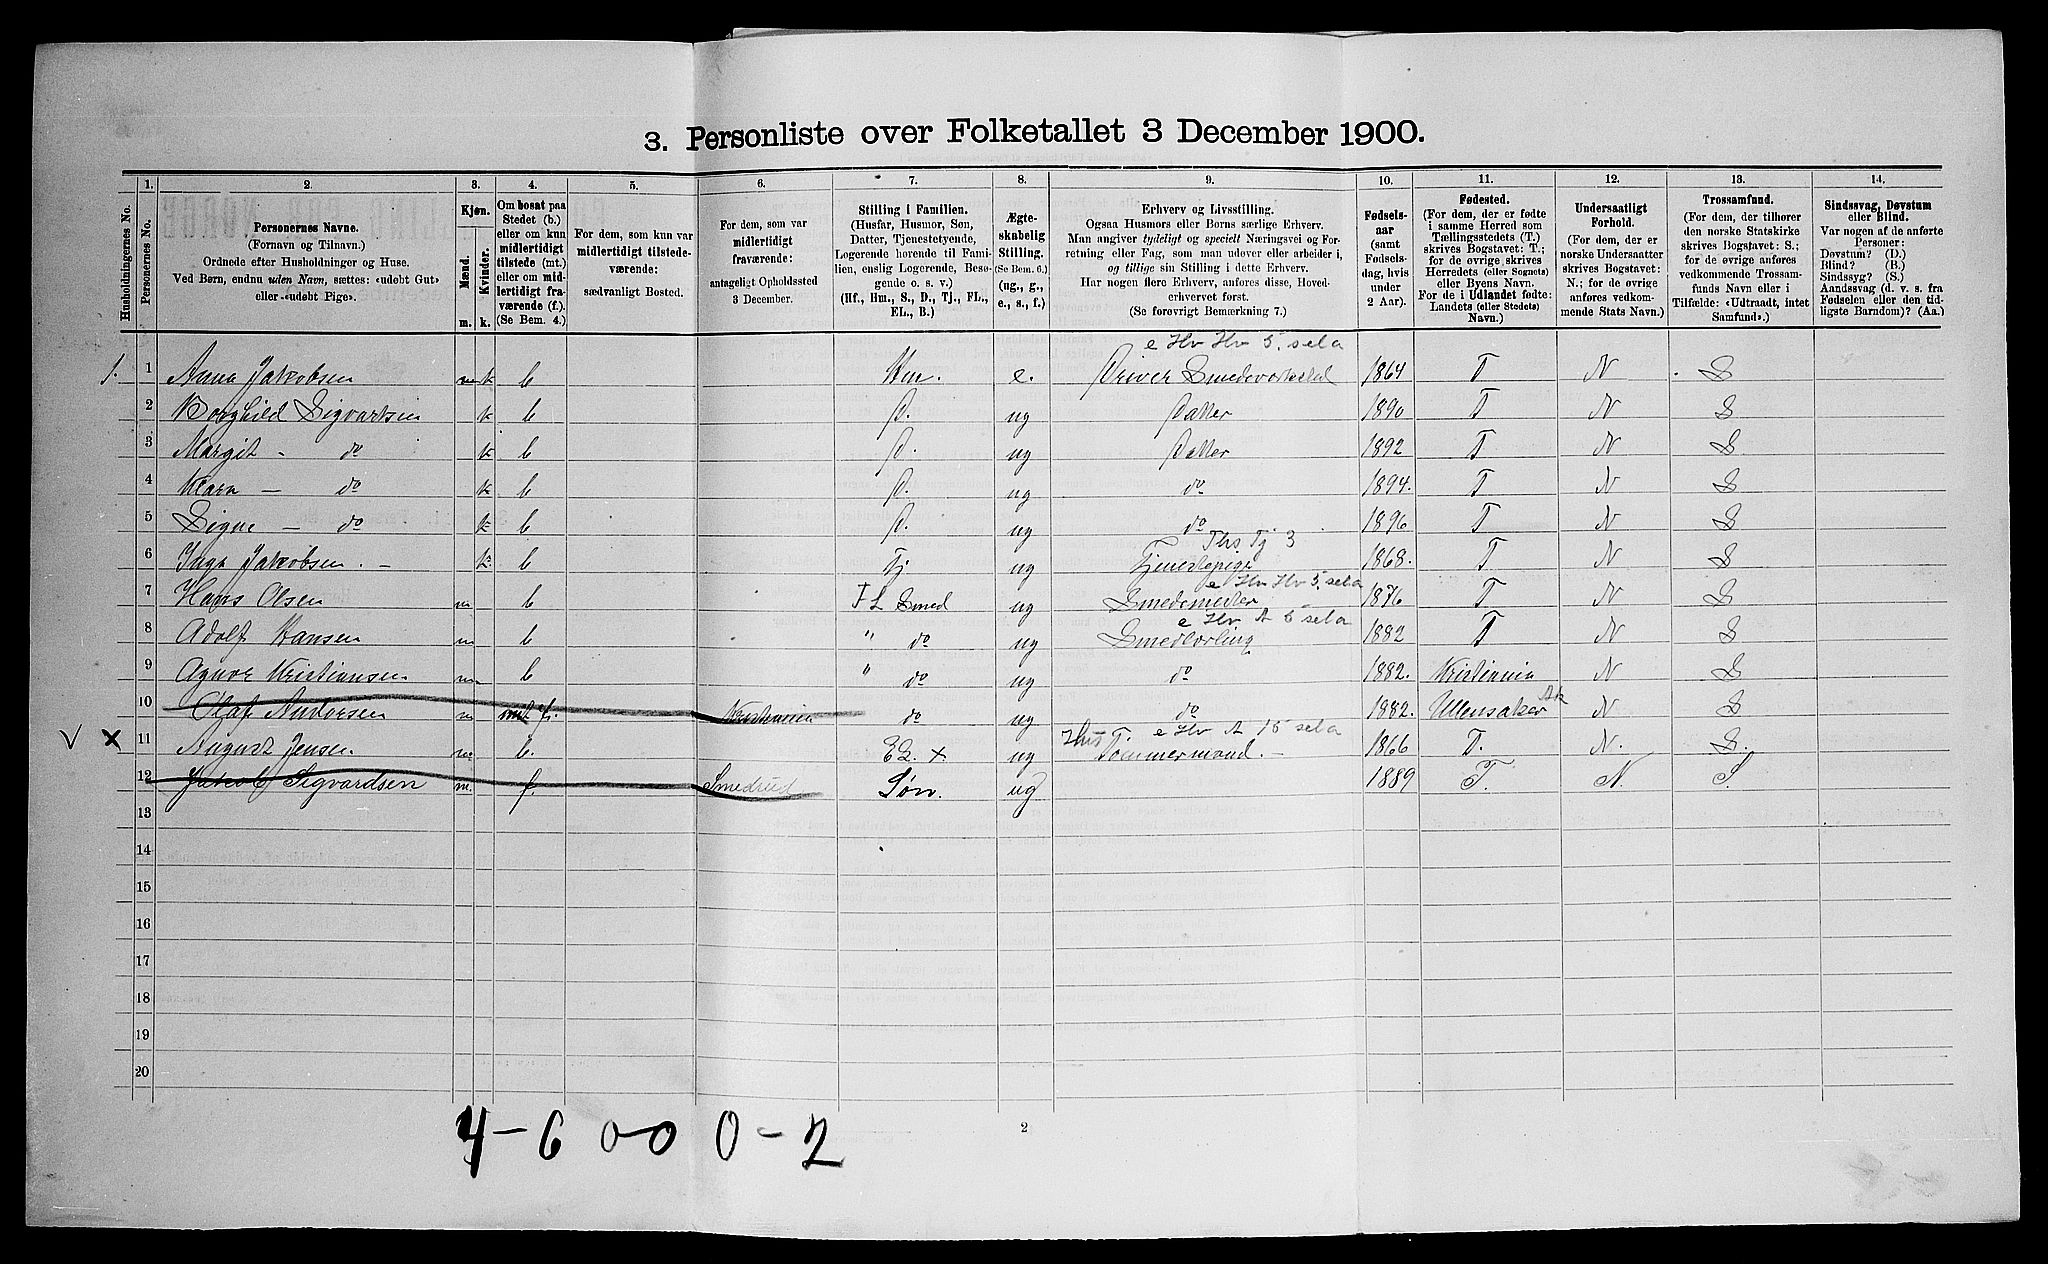 3. Personliste over Folketallet 3 December 1900.
Husholdningernes No.
1. Personernes No.
2. Personernes Navne.
(Fornavn og Tilnavn.)
Ordnede efter Husholdninger og Huse.
Ved Børn, endnu uden Navn, sættes: «udøbt Gut»
eller «udøbt Pige».
3. Kjøn.
Mænd. Kvinder.
m. k.
4. Om bosat paa
Stedet (b.)
eller om kun
midlertidigt
tilstede (mt.)
eller om mid-
lertidigt fra-
værende (f.).
(Se Bem. 4.)
5. For dem, som kun var
midlertidigt tilstede-
værende:
sædvanligt Bosted.
6. For dem, som var
midlertidigt
fraværende:
antageligt Opholdssted
3 December.
7. Stilling i Familien.
(Husfar, Husmor, Søn,
Datter, Tjenestetyende,
Logerende hørende til Fami-
lien, enslig Logerende, Besø-
gende o. s. v.)
(Hf., Hm., S., D., Tj., FL.,
EL., B.)
8. Ægte-
skabelig
Stilling.
(Se Bem. 6.)
(ug., g.,
e., s., f.)
9. Erhverv og Livsstilling.
Ogsaa Husmors eller Børns særlige Erhverv.
Man angiver tydeligt og specielt Næringsvei og For-
retning eller Fag, som man udøver eller arbeider i,
og tillige sin Stilling i dette Erhverv.
Har nogen flere Erhverv, anføres disse, Hoved-
erhvervet først.
(Se forøvrigt Bemærkning 7.)
10. Fødsels-
aar
(samt
Fødsels-
dag, hvis
under
2 Aar).
11. Fødested.
(For dem, der er fødte
i samme Herred som
Tællingsstedets (T.)
skrives Bogstavet: T.;
for de øvrige skrives
Herredets (eller Sognets)
eller Byens Navn.
For de i Udlandet fødte:
Landets (eller Stedets)
Navn.)
12. Undersaatligt
Forhold.
(For de, der er
norske Undersaatter
skrives Bogstavet:
N.; for de øvrige
anføres vedkom-
mende Stats Navn.)
13. Trossamfund.
(For dem, der tilhører
den norske Statskirke
skrives Bogstav: S.;
for de øvrige anføres
vedkommende Trossam-
funds Navn eller i
Tilfælde: «Udtraadt, intet
Samfund».)
14. Sindssvag, Døvstum
eller Blind.
Var nogen af de anførte
Personer:
Døvstum? (D.)
Blind? (B.)
Sindssyg? (S.)
Aandssvag (d. v. s. fra
Fødselen eller den tid-
ligste Barndom)? (Aa.)
e Hv Hv 5. sela
1. 1 Anna Jakobsen k b Hm. e. Driver Smedeverksted 1864 T N S
2 Borghild Sigvartsen k b D. ug Datter 1890 T N S
3 Margit - do k b D. ug Datter 1892 T N S
4 Klara - do k b D. ug do 1894. T N S
5 Signe - do k b D. ug do 1896 T N S
Ths Tj 3
6 Inga Jakobsen. - k. b Tj ug Tjenestepige 1868. T N S
e Hv Hv 5. sela
7 Hans Olsen m b FL Smed ug Smedemester 1876 T N S
e Hv A 6 sela
8 Adolf Hansen m b " do ug Smedlærling 1882 T N S
9 Agnar Kristiansen m b " do ug do 1882. Kristiania N S
10 Olaf Andersen m mt f. Kristiania do ug do 1882. Ullensaker Ak N S
Hus T. e Hv A 15 sela
V X 11 August Jensen m. b. EL. x ug Tømmermand. - 1866 T. N. S.
12 Jakob Sigvardsen m. f. Smedrud Søn. ug 1889 T. N. S.
13
14
15
16
17
18
19
20
4-6 0-0 0-2
2